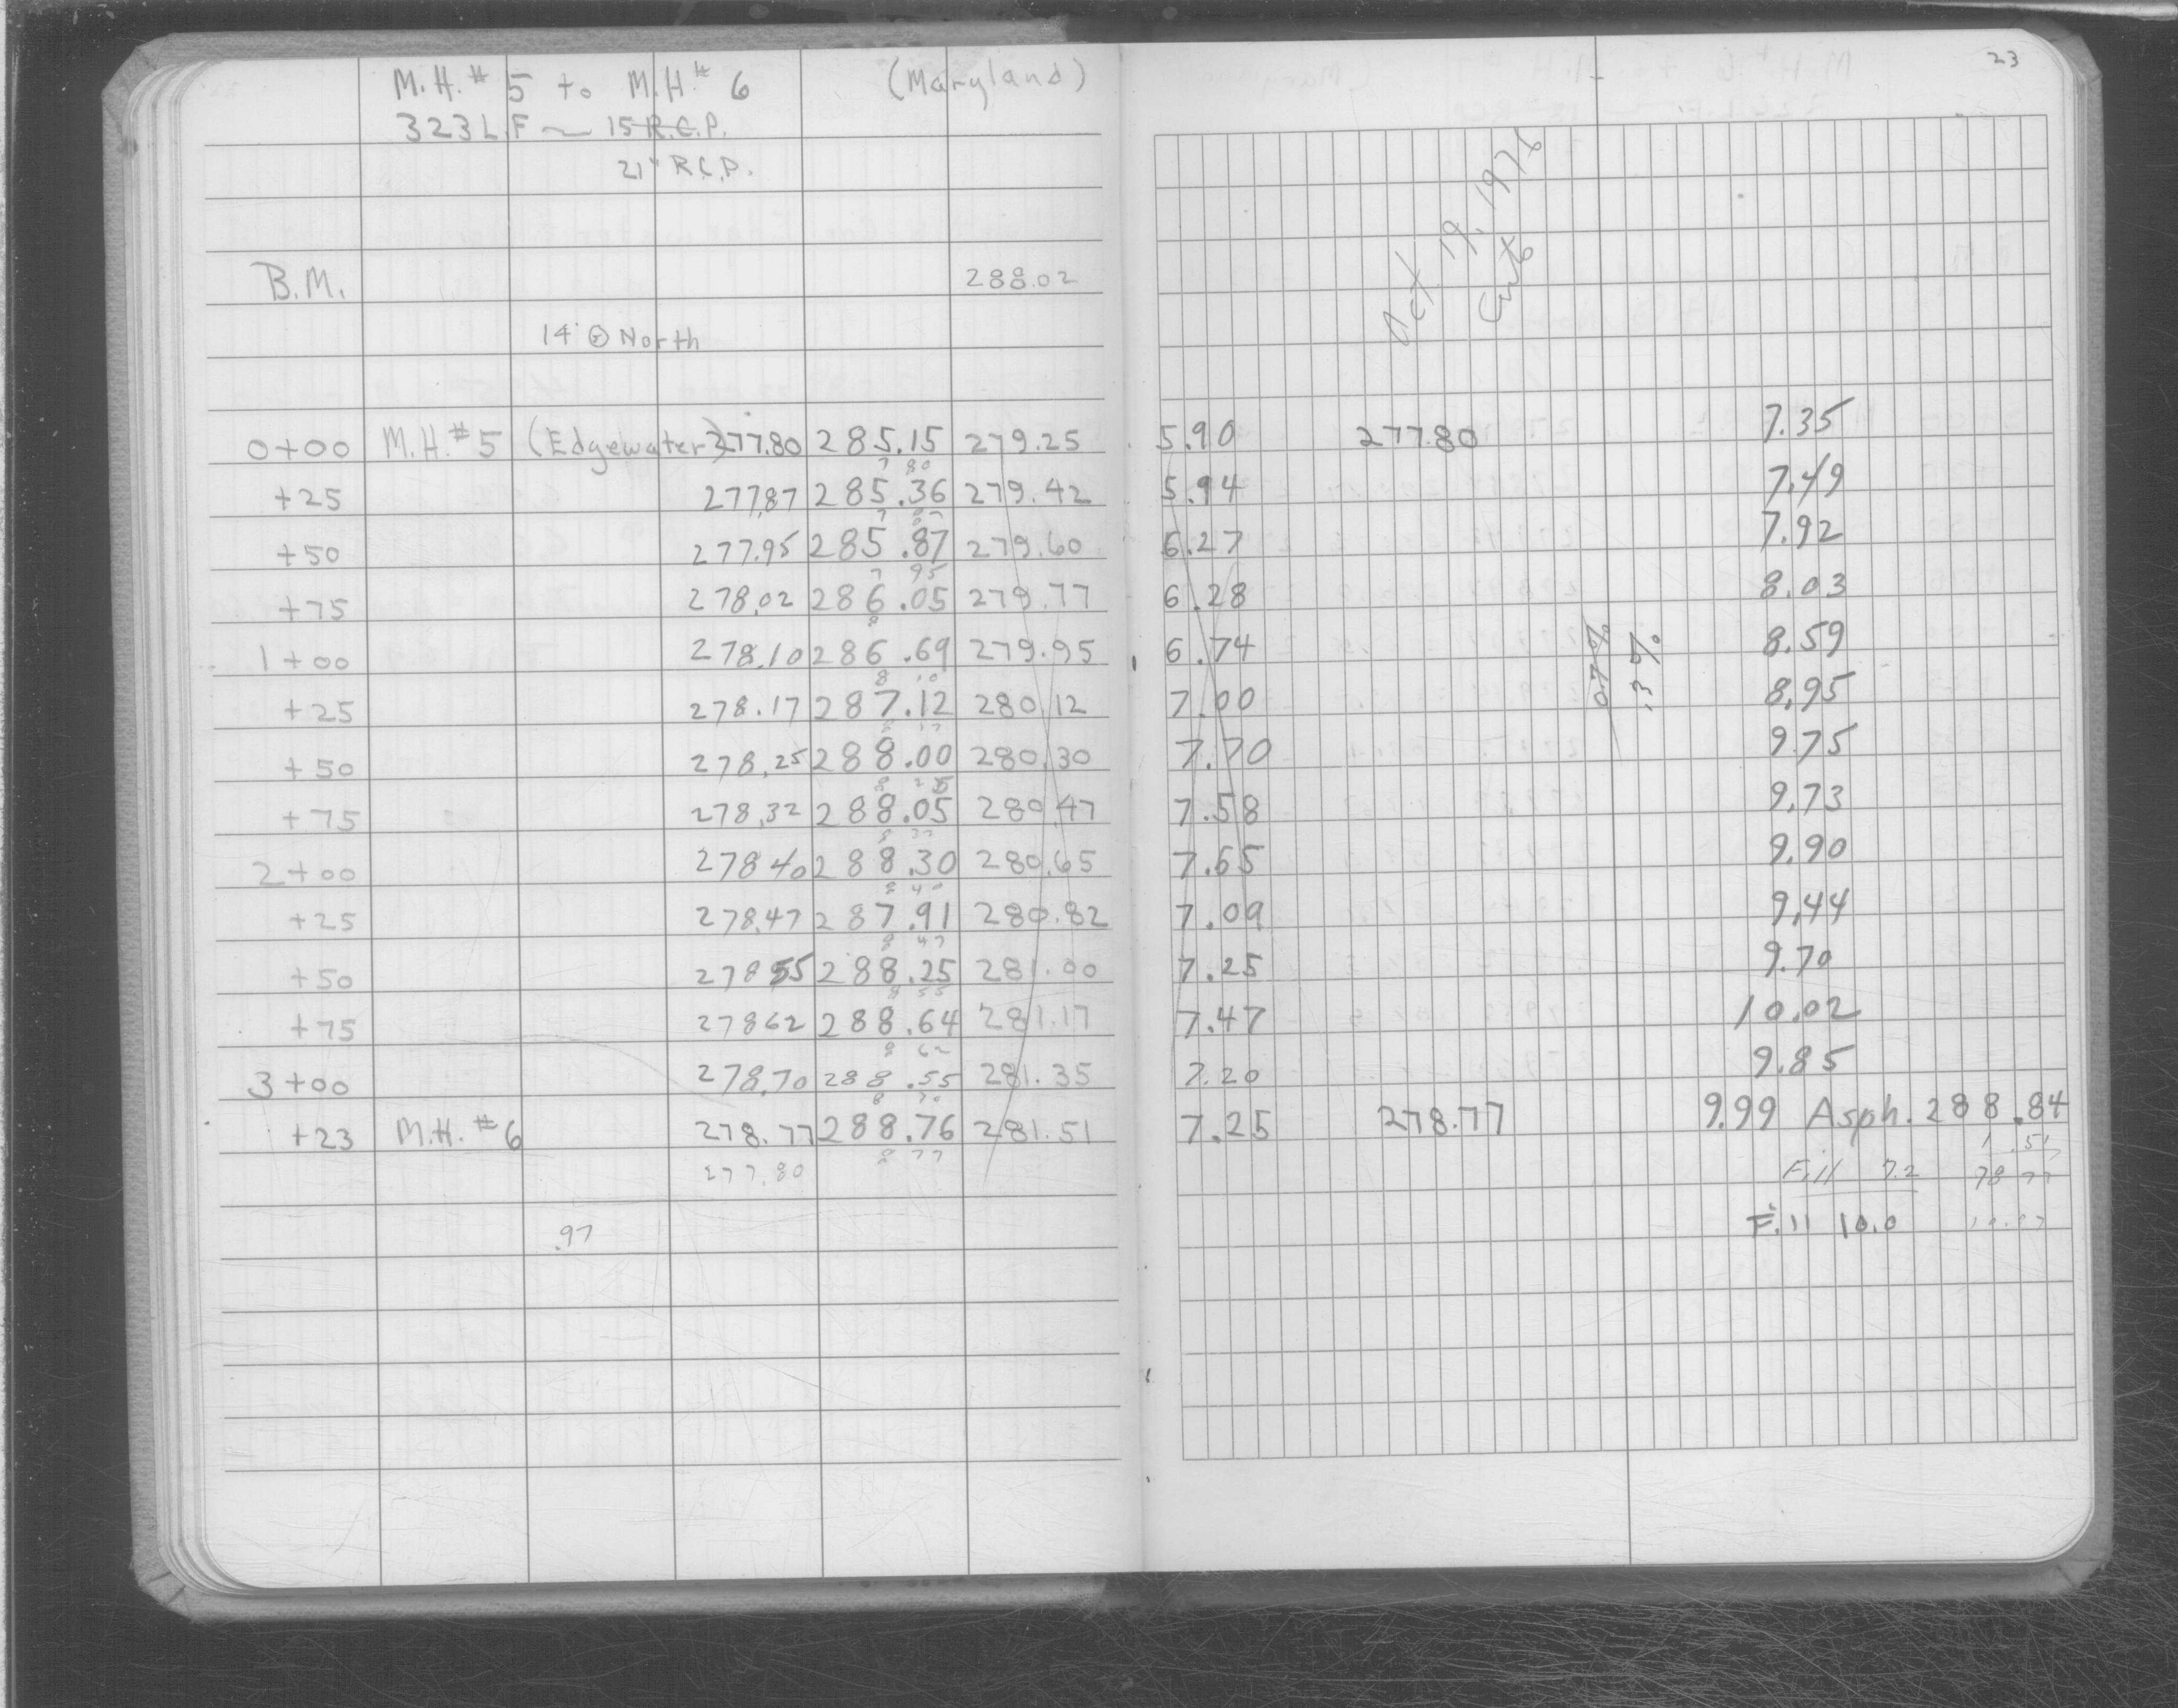 23
M.H.# 5 to M.H.# 6 (Maryland)
323 L.F ~ 15 R.C.P.
21" R.C.P.
Oct 19, 1976
B.M. 288.02
14' North
0+00 M.H.#5 (Edgewater) 277.80 285.15 279.25 5.90 277.80 7.35
7 80
+25 277.87 285.36 279.42 5.94 7.49
7 87
+50 277.95 285.87 279.60 6.27 7.92
7 95
+75 278.02 286.05 279.77 6.28 8.03
8
1+00 278.10 286.69 279.95 6.74 0.7% .3% 8.59
8 10
+25 278.17 287.12 280.12 7.00 8.95
8 17
+50 278.25 288.00 280.30 7.70 9.75
8 25
+75 278.32 288.05 280.47 7.58 9.73
8 32
2+00 278.40 288.30 280.65 7.65 9.90
8 40
+25 278.47 287.91 280.82 7.09 9.44
8 47
+50 278 55 288.25 281.00 7.25 9.70
8 55
+75 278 62 288.64 281.17 7.47 10.02
8 62
3+00 278.70 288.55 281.35 7.20 9.85
8 70
+23 M.H.#6 278.77 288.76 281.51 7.25 278.77 9.99 Asph. 288.84
277.80 8 77 1.51
Fill 7.2 78 77
.97 Fill 10.0 10.07